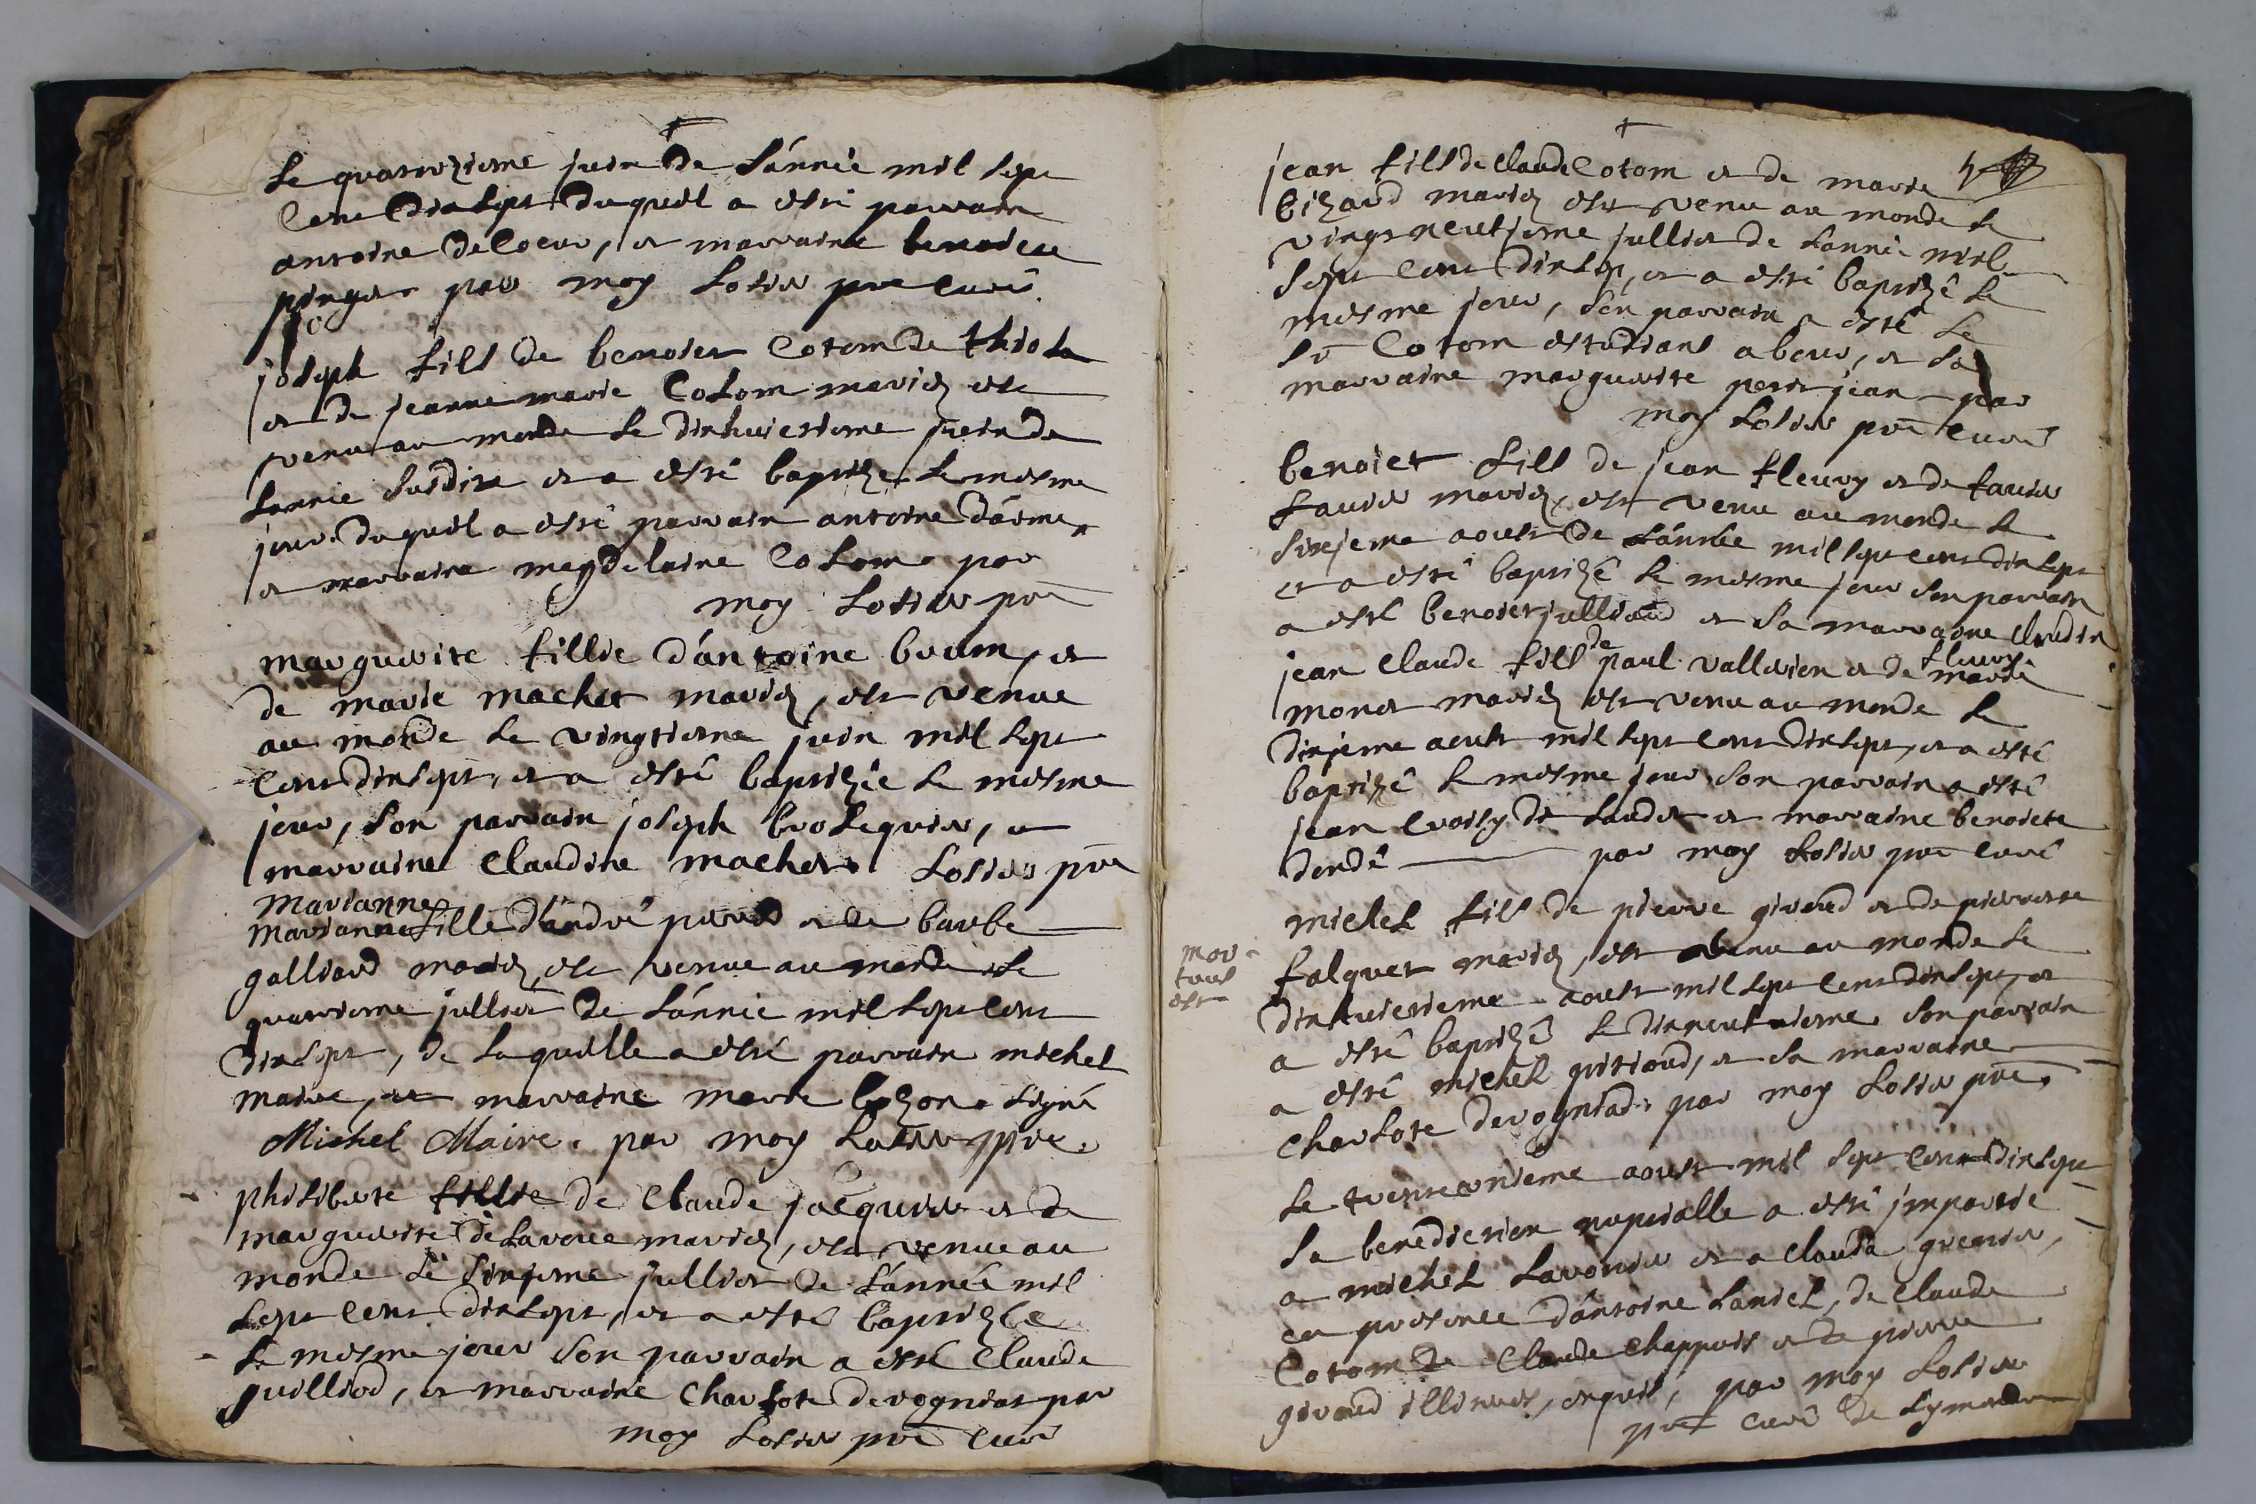 Le quatorziesme juin de Lánneé mil sept
Cent dixsept duquél a esté parrain
antoine deCoeur, et marraine benoiete
par moy Losier pre Curé
joseph fills de benoiet Cotom de
et de jeanne marie Cotom mariez est
venu au monde Le dixhuictiesme juin de
Lannee Susdite et a esté baptizé Le mesme
jour duquél a esté parrain antoine
et marraine magdelaine Cotom par
moy Losier pre
marguerite fillie dántoine brum, et
de marie machet mariez, est venue
au monde Le vingtiesme juin mil sept
Cent dixsept, et a esté baptizée Le mesme
jour, Son parrain joseph brosequier, et
marraine Claudine machet Losier pre
marianne
marianne fille dándré et de barbe
galliard mariez, est venue au monde Le
quatriesme jullier de Lánneé mil sept Cent
dixsept, de Laquélle a esté parrain michel
maire, et marraine marie Signé
Michel Maire. par moy Losier pre.
philiberte fillie de Claude jacquier et de
marguerite deLavoue mariez, est venue au
monde Le Sixjesme jullier de Lánneé mil
Sept Cent dixsept, et a esté baptizée
Le mesme jour Son parrain a esté Claude
guilliod, et marraine Charlote devognias par
moy Losier pre Curé
jean fills de Claude Cotom et de marie
bizard mariez est venu au monde Le
vingtneufjesme jullier de Lánneé mil
Sept Cent dixsep, et a esté baptizé Le
mesme jour, Son parrain a esté Le
Sr Cotom estudiant abour, et Sa
marraine marguerite petit jean par
moy Losier pre Curé
benoiet fills de jean fleury et de
mariez, est venu au monde Le
Sixjeme aoust de Lánnée mil sept cent dixsept
et a esté baptizé Le mesme jour Son parrain
a esté benoiet julliard et Sa marraine Claudin
fleury
jean Claude fills de paul vallerion et de marie
monet mariez est venu au monde Le
dixjeme aoust mil sept Cent dixsept, et a esté
baptizé Le mesme jour Son parrain a esté
jean Croisy de et marraine benoiete
dondé par moy Losier pre Curé
michel fills de pierre giroud et de pierrette
falquet mariez, est venu au monde Le
dixhuictieme aoust mil sept Cent dixsept, et
a esté baptizé Le dixneufvieme Son parrain
a esté michel guitioud, et Sa marraine
Charlote devogniad par moy Losier pre
mor
tuus
est
Le trenteunieme aoust mil sept Cent dixsept
La benediction nuptialle a esté jmpartie
a michel Lavorier et a Clauda grenier,
en presence dántoine Laniel, de Claude
Cotom de Claude Chappuis et de pierre
giroud illitrés, enquis, par moy Losier
pre Curé de